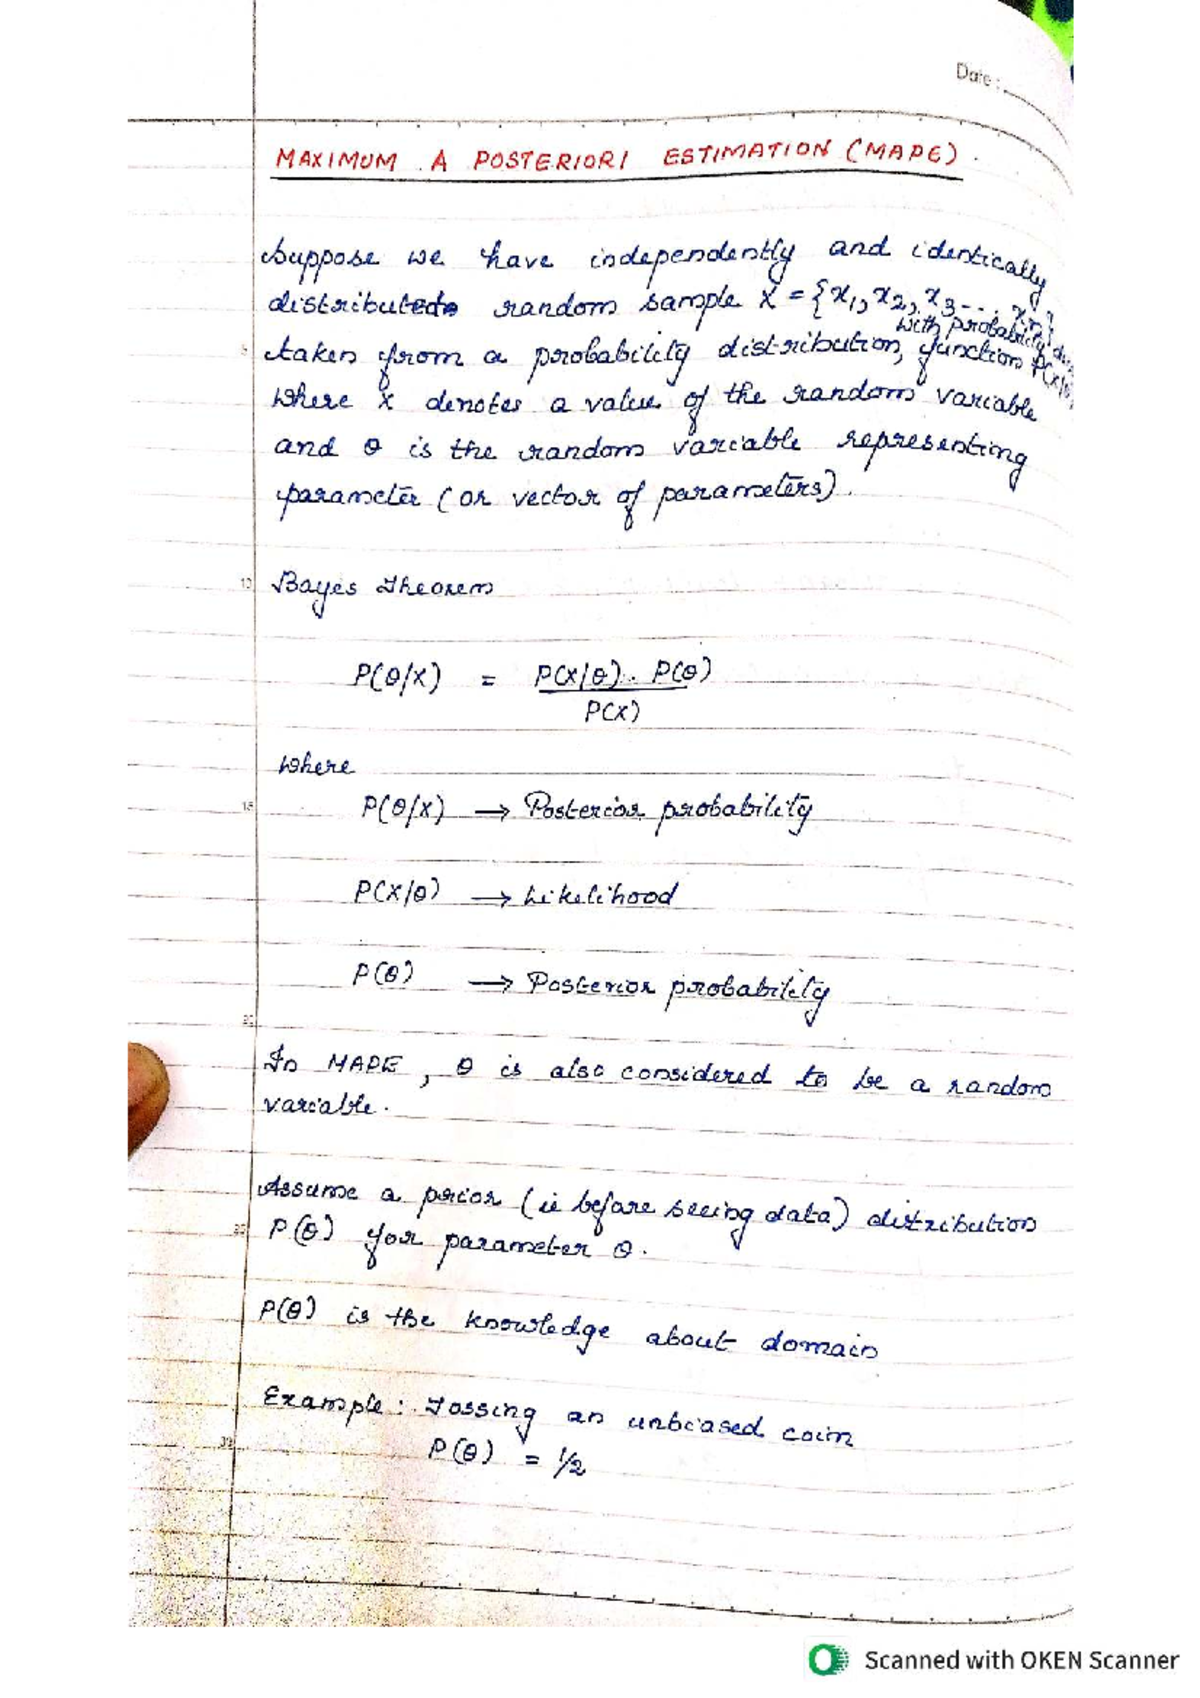 Date :
MAXIMUM A POSTERIORI ESTIMATION (MAPE).
Suppose we have independently and identically
distributed random sample X = {x1, x2, x3 ..., xn}
with probability
taken from a probability distribution, function P(X/θ)
where x denotes a value of the random variable
and θ is the random variable representing
parameter (or vector of parameters).
Bayes Theorem
P(θ/X) = P(X/θ). P(θ)
P(X)
where
P(θ/X) → Posterior probability
P(X/θ) → Likelihood
P(θ) → Posterior probability
In MAPE, θ is also considered to be a random
variable.
Assume a prior (ie before seeing data) distribution
P(θ) for parameter θ.
P(θ) is the knowledge about domain
Example: Tossing an unbiased coin
P(θ) = 1/2
5
10
15
20
25
30
Scanned with OKEN Scanner